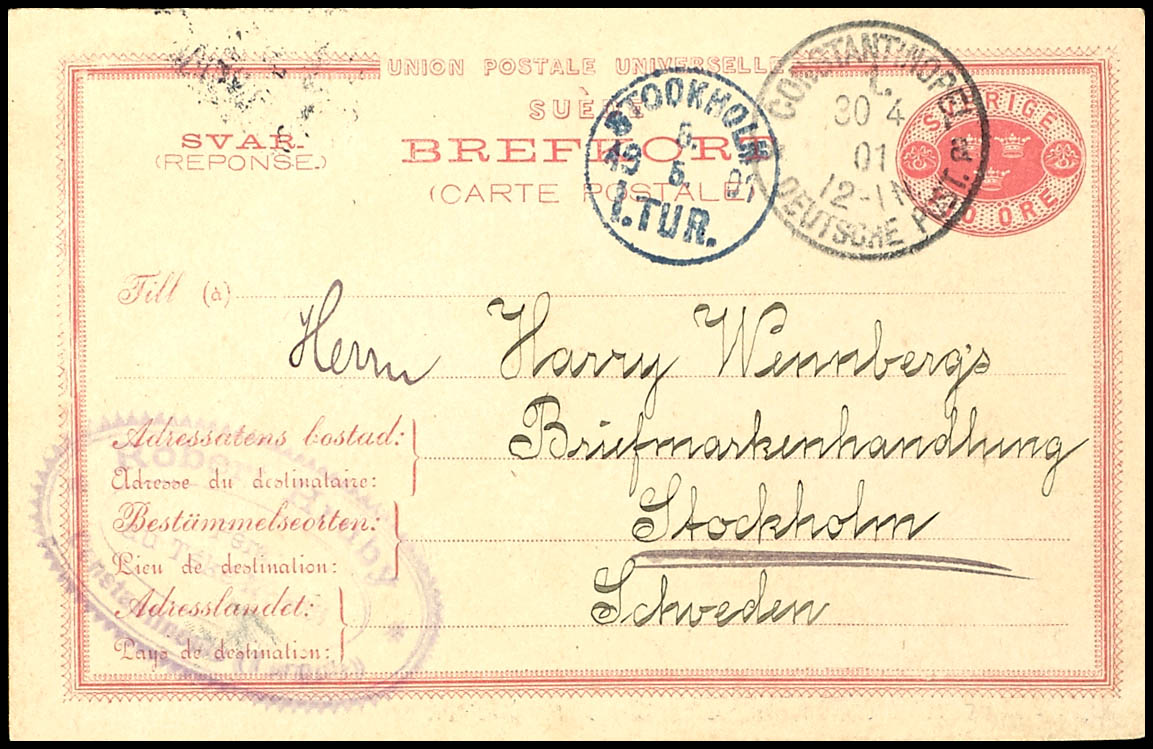 UNION POSTALE UNIVERSELLE
SUÈDE
SVAR.
(RÉPONSE.)
BREFKORT
(CARTE POSTALE)
STOCKHOLM
6.
19 5. 01
1. TUR.
CONSTANTINOPEL
1.
30 4
01
12-1N
DEUTSCHE POST
SVERIGE
TIO ÖRE
Till (à)
Herrn Harry Wennbergs
Adressatens bostad:
Briefmarkenhandlung
Adresse du destinataire:
Bestämmelseorten:
Stockholm
Lieu de destination:
Adresslandet:
Schweden
Pays de destination:
Robert
Constantinople